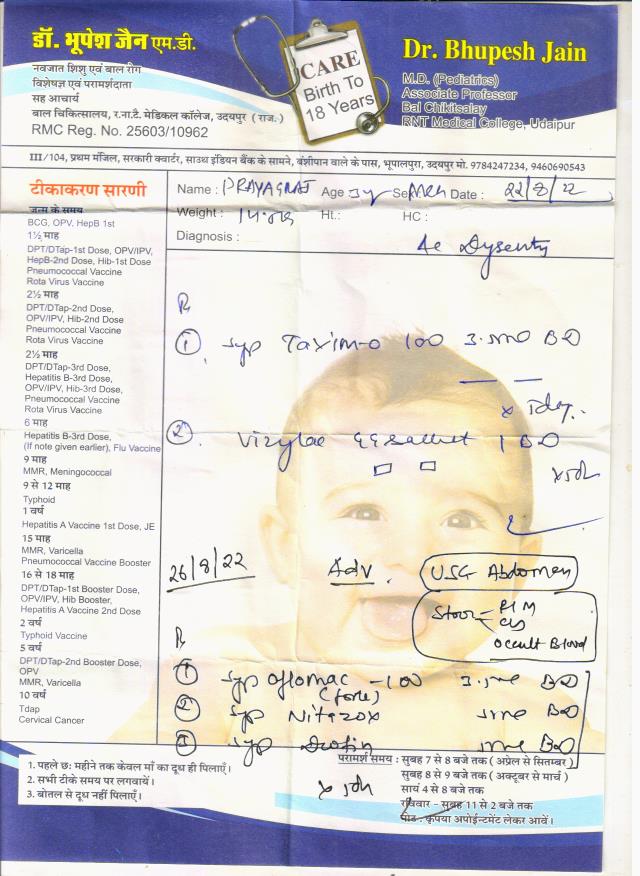 डॉ. भूपेश जैन एम.डी.
नवजात शिशु एवं बाल रोग
विशेषज्ञ एवं परामर्शदाता
सह आचार्य
बाल चिकित्सालय, र.ना.टै. मेडिकल कॉलेज, उदयपुर ( राज.)
RMC Reg. No. 25603/10962
CARE
Birth To
18 Years
Dr. Bhupesh Jain
M.D. (Pediatrics)
Associate Professor
Bal Chikitsalay
RNT Medical College, Udaipur
III/104, प्रथम मंजिल, सरकारी क्वार्टर, साउथ इंडियन बैंक के सामने, बंशीपान वाले के पास, भूपालपुरा, उदयपुर मो. 9784247234, 9460690543
टीकाकरण सारणी
जन्म के समय
BCG, OPV, HepB 1st
1½ माह
DPT/DTap-1st Dose, OPV/IPV,
HepB-2nd Dose, Hib-1st Dose
Pneumococcal Vaccine
Rota Virus Vaccine
2½ माह
DPT/DTap-2nd Dose,
OPV/IPV, Hib-2nd Dose
Pneumococcal Vaccine
Rota Virus Vaccine
2½ माह
DPT/DTap-3rd Dose,
Hepatitis B-3rd Dose,
OPV/IPV, Hib-3rd Dose,
Pneumococcal Vaccine
Rota Virus Vaccine
6 माह
Hepatitis B-3rd Dose,
(If note given earlier), Flu Vaccine
9 माह
MMR, Meningococcal
9 से 12 माह
Typhoid
1 वर्ष
Hepatitis A Vaccine 1st Dose, JE
15 माह
MMR, Varicella
Pneumococcal Vaccine Booster
16 से 18 माह
DPT/DTap-1st Booster Dose,
OPV/IPV, Hib Booster,
Hepatitis A Vaccine 2nd Dose
2 वर्ष
Typhoid Vaccine
5 वर्ष
DPT/DTap-2nd Booster Dose,
OPV
MMR, Varicella
10 वर्ष
Tdap
Cervical Cancer
Name : PRAYAGRAJ Age 3y Sex Mch Date : 22/8/22
Weight : Ht.: HC :
Diagnosis : Ac Dysentry
Rx
① Syp Taxim-O 100 3.5ml BD
② 1 BD
26/8/22 Adv. USG Abdomen
Stool - R/M
C/S
Occult Blood
Rx
① Syp Oflomac -100 3.5ml BD
(forte)
② Syp Nitazox 5ml BD
③ Syp 5ml BD
1. पहले छः महीने तक केवल माँ का दूध ही पिलाएँ।
2. सभी टीके समय पर लगवायें।
3. बोतल से दूध नहीं पिलाएँ।
परामर्श समय : सुबह 7 से 8 बजे तक ( अप्रेल से सितम्बर )
सुबह 8 से 9 बजे तक ( अक्टूबर से मार्च )
सायं 4 से 8 बजे तक
रविवार - सुबह 11 से 2 बजे तक
नोट : कृपया अपोईन्टमेंट लेकर आवें।